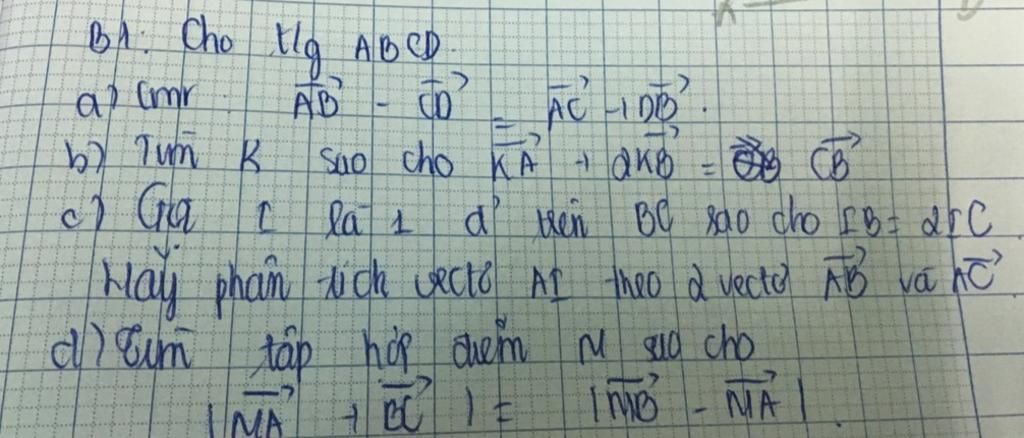 B1: Cho tứg ABCD.
a) Cmr: \overrightarrow{AB} - \overrightarrow{CD} = \overrightarrow{AC} + \overrightarrow{DB}.
b) Tìm K sao cho \overrightarrow{KA} + 2\overrightarrow{KB} = \overrightarrow{CB}
c) Gọi I là 1 đ' trên BC sao cho IB = 2IC.
Hãy phân tích vectơ AI theo 2 vectơ \overrightarrow{AB} và \overrightarrow{AC}
d) Tìm tập hợp điểm M sao cho
|\overrightarrow{MA} + \overrightarrow{BC}| = |\overrightarrow{MB} - \overrightarrow{MA}|